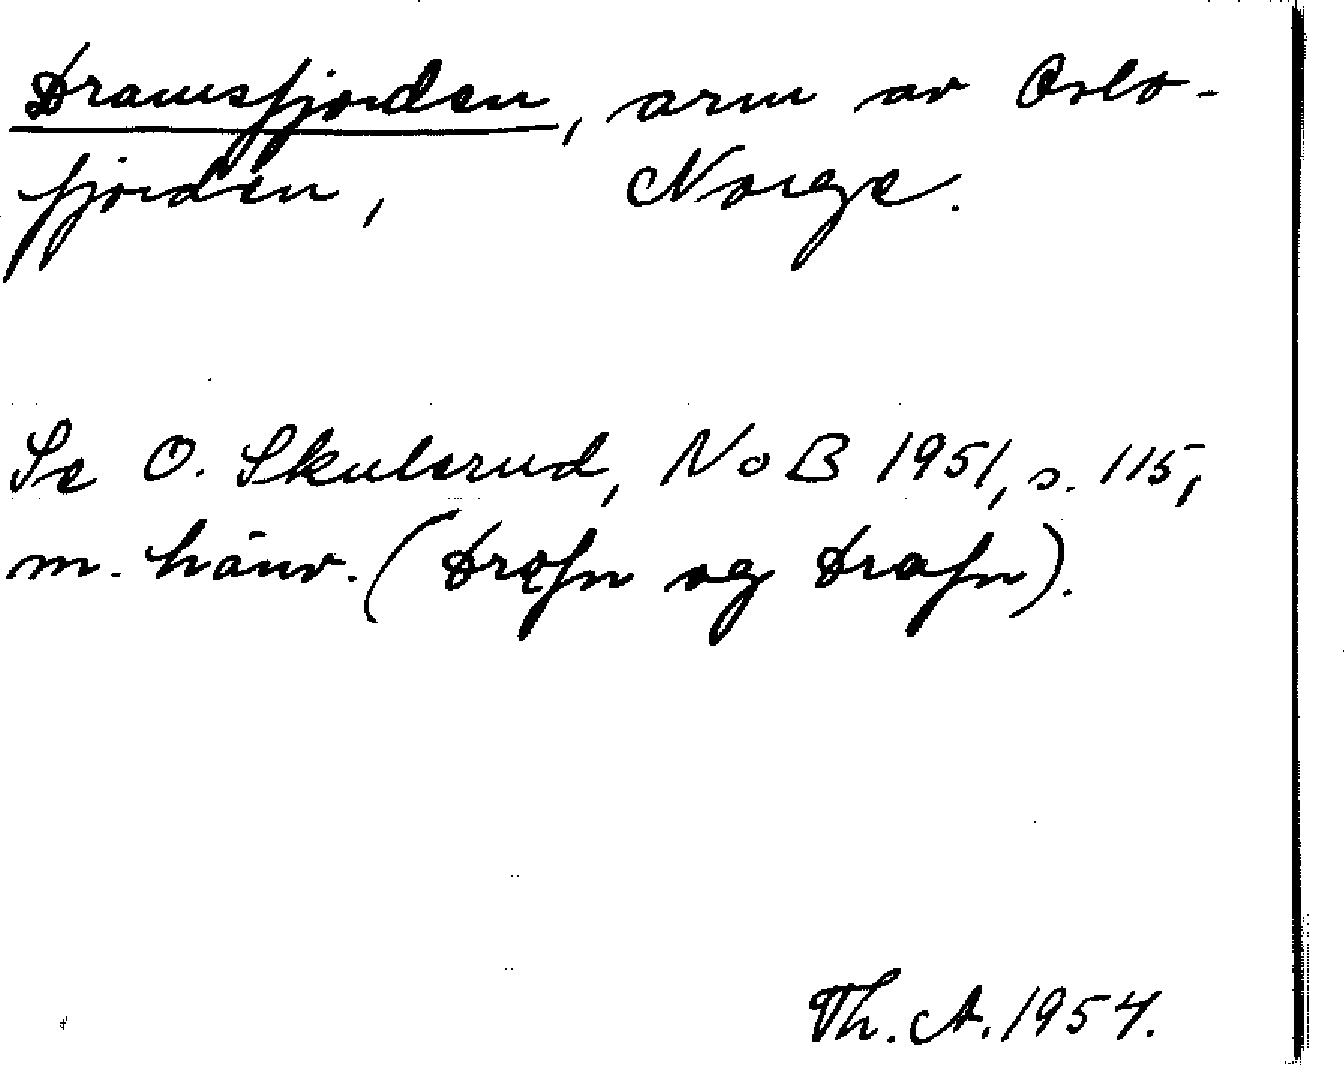 Dramsfjorden, arm av Oslo-
fjorden, Norge.
Se O. Skulerud, NoB 1951, s. 115,
m. hänv. (Drǫfn og Drafn).
Th. A. 1954.